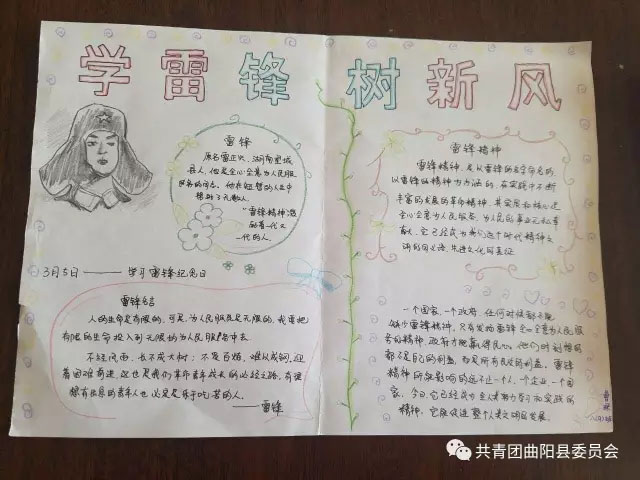 学雷锋 树新风
雷锋
原名雷正兴,湖南望城
县人,他是全心全意为人民服
务的战士,他在短暂的人生中
帮助了无数人。
"雷锋精神"激
励着一代又
一代的人。
3月5日——学习雷锋纪念日
雷锋名言
人的生命是有限的,可是,为人民服务是无限的,我要把
有限的生命投入到无限的为人民服务中去。
不经风雨,长不成大树;不受百炼,难以成钢。迎
着困难前进,这也是我们革命青年成长的必经之路。有理
想有出息的青年人也必定是乐于吃苦的人。
——雷锋
雷锋精神
雷锋精神,是以雷锋的名字命名的,
以雷锋的精神为内涵的,在实践中不断
丰富和发展的革命精神,其实质和核心是
全心全意为人民服务,为人民的事业无私奉
献。它已经成为我们这个时代精神文
明的同义语,先进文化的表征
一个国家,一个政府,任何时候都不能
缺少雷锋精神,只有发扬雷锋全心全意为人民服
务的精神,政府才能赢得民心。他们时刻想的
都不是自己的利益,而是所有民众的利益,雷锋
精神所能影响的远不止一个人,一个企业,一个国
家,今日,它已经成为全人类努力学习和实践的
精神,它能促进整个人类文明的发展。
共青团曲阳县委员会